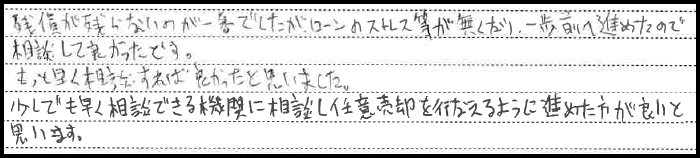 残債が残らないのが一番でしたがローンのストレス等が無くなり、一歩前へ進めたので
相談して良かったです。
もっと早く相談すれば良かったと思いました。
少しでも早く相談できる機関に相談し任意売却を行なえるように進めた方が良いと
思います。